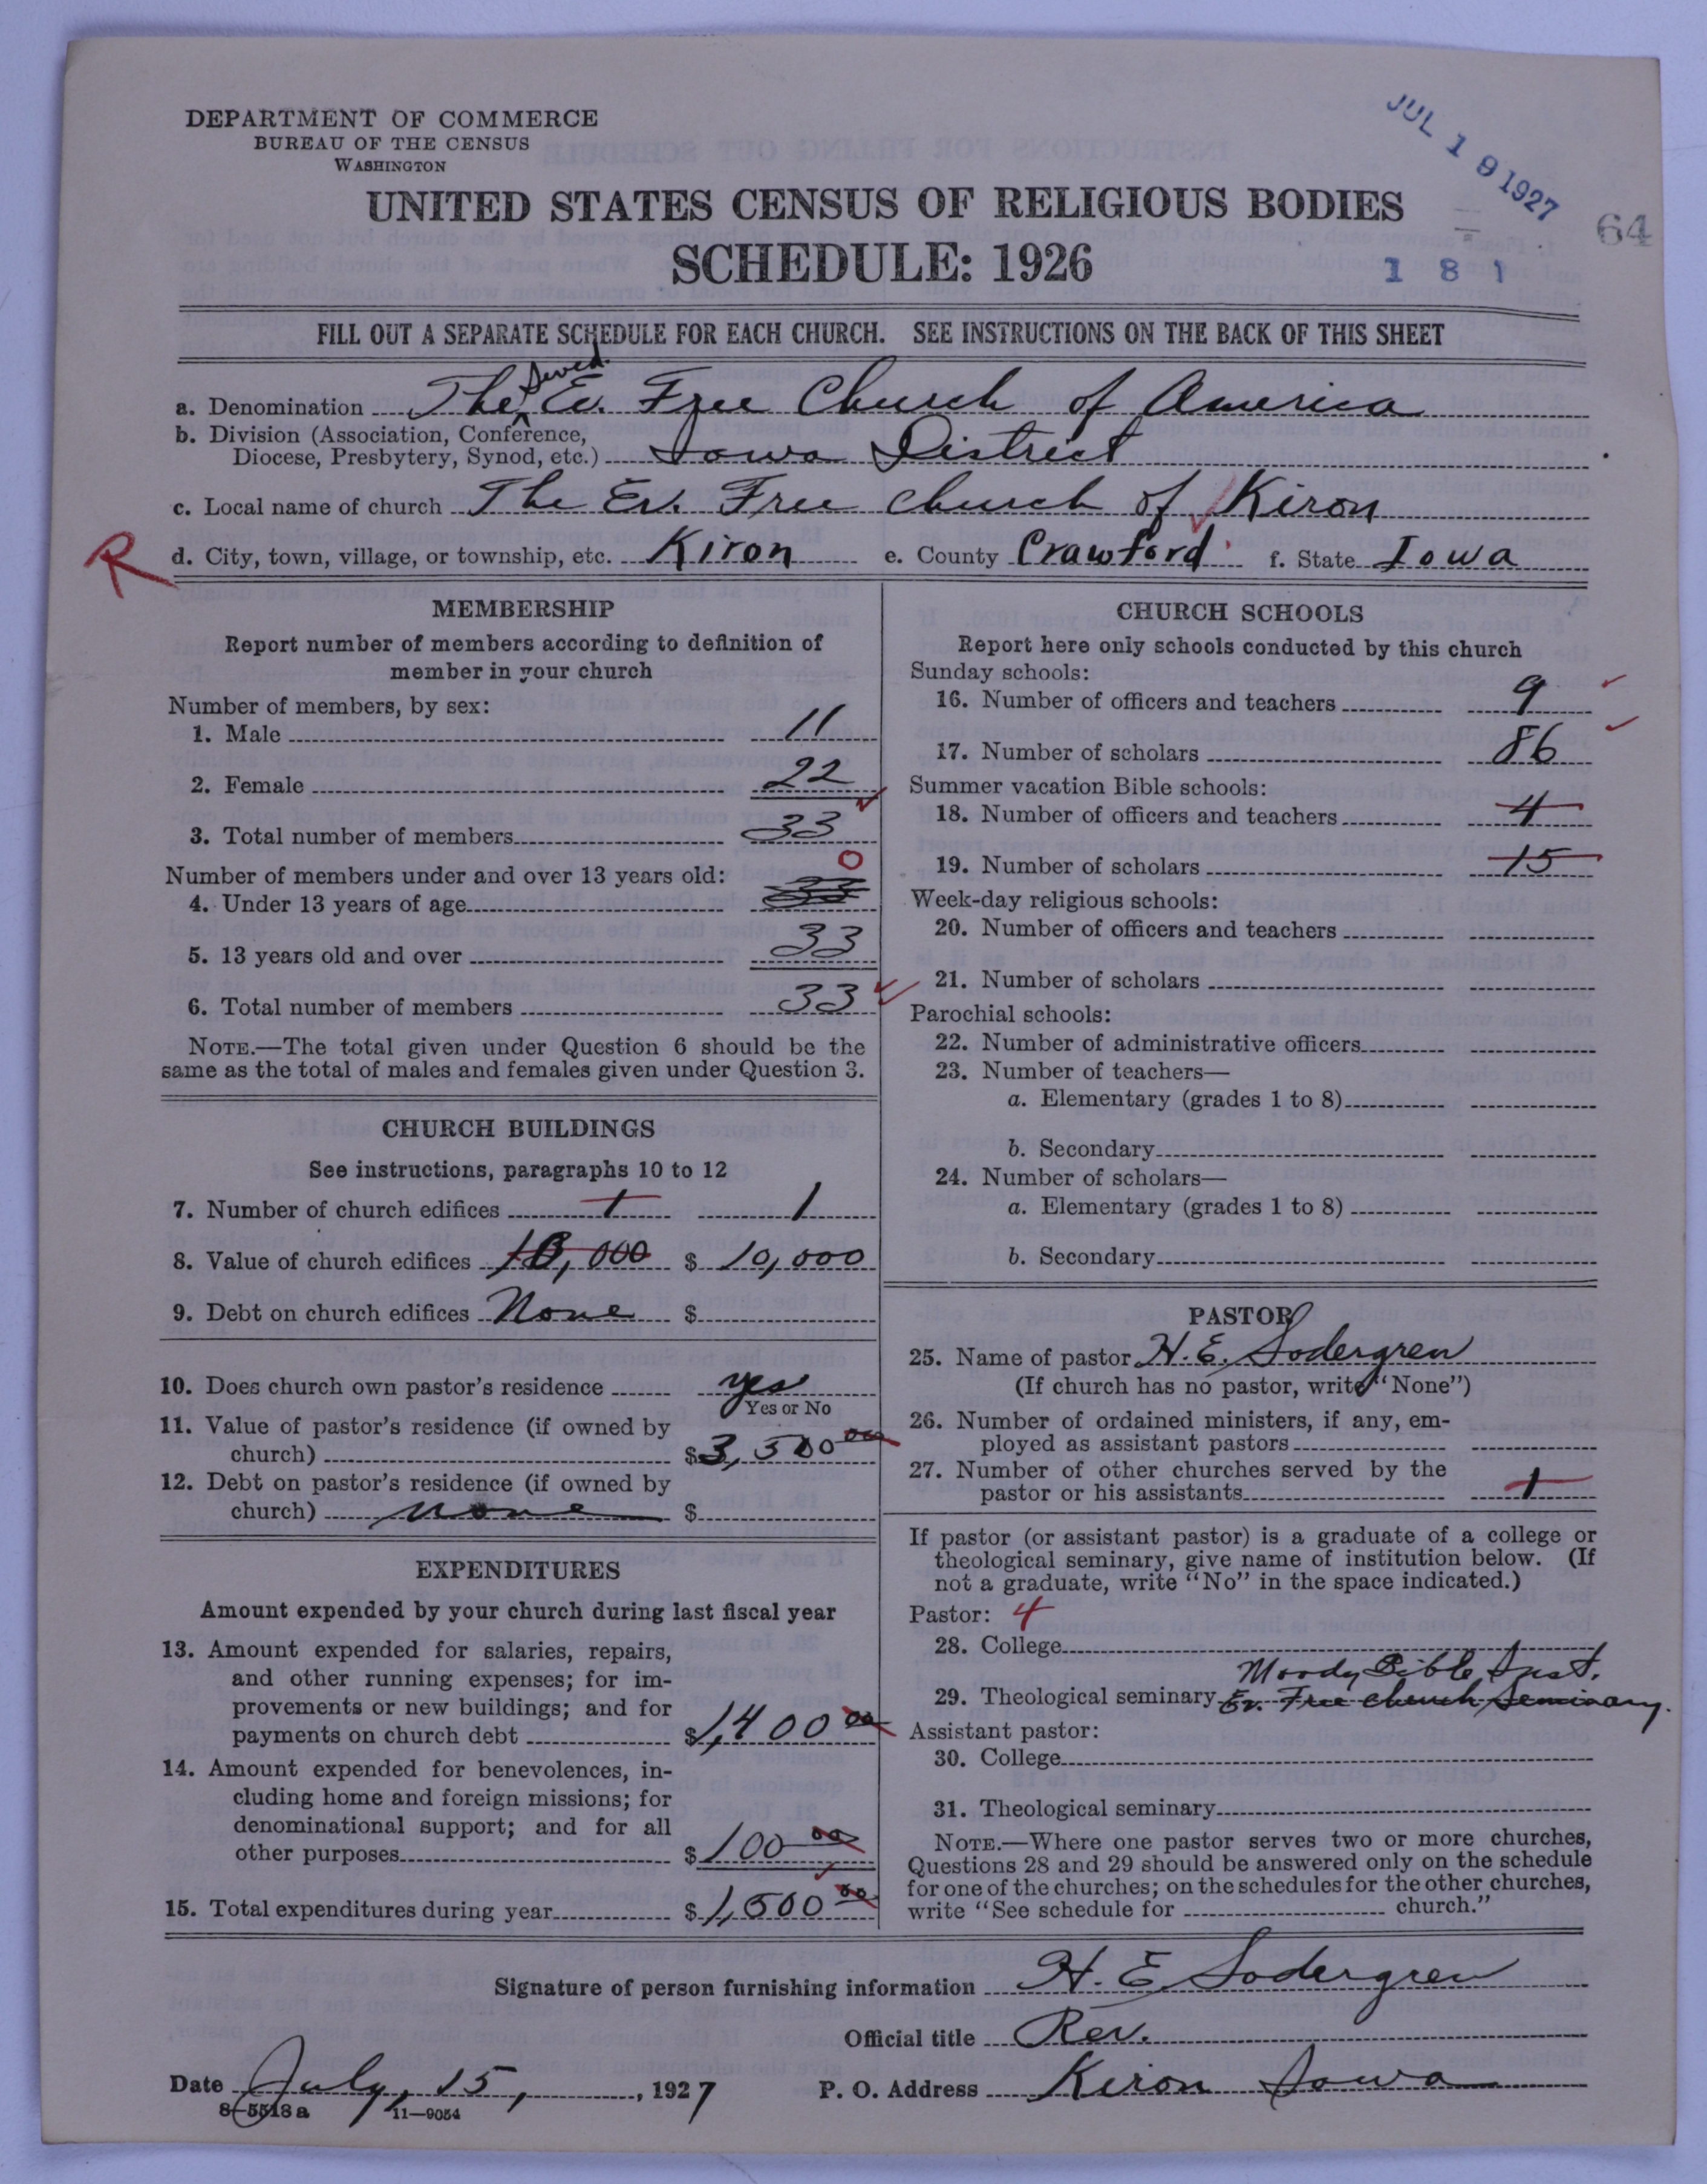 DEPARTMENT OF COMMERCE
BUREAU OF THE CENSUS
WASHINGTON
JUL 19 1927
UNITED STATES CENSUS OF RELIGIOUS BODIES
64
SCHEDULE: 1926
1 8 1
FILL OUT A SEPARATE SCHEDULE FOR EACH CHURCH. SEE INSTRUCTIONS ON THE BACK OF THIS SHEET
Swed.
a. Denomination The Ev. Free Church of America
b. Division (Association, Conference,
Diocese, Presbytery, Synod, etc.) Iowa District
c. Local name of church The Ev. Free Church of Kiron
R
d. City, town, village, or township, etc. Kiron e. County Crawford f. State Iowa
MEMBERSHIP
Report number of members according to definition of
member in your church
Number of members, by sex:
1. Male 11
2. Female 22
3. Total number of members 33
0
Number of members under and over 13 years old:
4. Under 13 years of age 33
5. 13 years old and over 33
6. Total number of members 33
NOTE.—The total given under Question 6 should be the
same as the total of males and females given under Question 3.
CHURCH BUILDINGS
See instructions, paragraphs 10 to 12
7. Number of church edifices 1 1
8. Value of church edifices 10,000 $ 10,000
9. Debt on church edifices None $
10. Does church own pastor's residence yes
Yes or No
11. Value of pastor's residence (if owned by
church) $3,500 00
12. Debt on pastor's residence (if owned by
church) none $
EXPENDITURES
Amount expended by your church during last fiscal year
13. Amount expended for salaries, repairs,
and other running expenses; for im-
provements or new buildings; and for
payments on church debt $1,400 00
14. Amount expended for benevolences, in-
cluding home and foreign missions; for
denominational support; and for all
other purposes $100 00
15. Total expenditures during year $1,500 00
CHURCH SCHOOLS
Report here only schools conducted by this church
Sunday schools:
16. Number of officers and teachers 9
17. Number of scholars 86
Summer vacation Bible schools:
18. Number of officers and teachers 4
19. Number of scholars 15
Week-day religious schools:
20. Number of officers and teachers
21. Number of scholars
Parochial schools:
22. Number of administrative officers
23. Number of teachers—
a. Elementary (grades 1 to 8)
b. Secondary
24. Number of scholars—
a. Elementary (grades 1 to 8)
b. Secondary
PASTOR
25. Name of pastor H. E. Sodergren
(If church has no pastor, write "None")
26. Number of ordained ministers, if any, em-
ployed as assistant pastors
27. Number of other churches served by the
pastor or his assistants 1
If pastor (or assistant pastor) is a graduate of a college or
theological seminary, give name of institution below. (If
not a graduate, write "No" in the space indicated.)
Pastor: 4
28. College
Moody Bible Inst.
29. Theological seminary Ev. Free Church Seminary.
Assistant pastor:
30. College
31. Theological seminary
NOTE.—Where one pastor serves two or more churches,
Questions 28 and 29 should be answered only on the schedule
for one of the churches; on the schedules for the other churches,
write "See schedule for church."
Signature of person furnishing information H. E. Sodergren
Official title Rev.
Date July, 15, , 1927 P. O. Address Kiron Iowa
8-5513a 11-9054